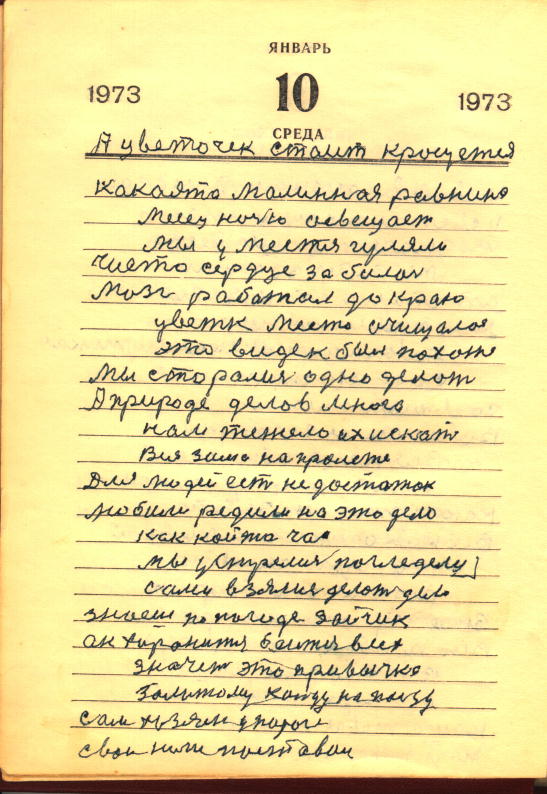 ЯНВАРЬ
1973 10 1973
СРЕДА
А цветочек стоит красуется
какаято малинная ровнина
месец ночю освещает
мы у места гуляли
чисто сердце забилос
Мозг работал до краю
цветк место очищалос
это видек был похож
мы старалис одно делат
А природе делов много
нам тежело их искат
Вся зима на пролете
Для людей ест недостаток
любили редили на это дело
как който час
мы
сами взялис делат дело
знаем по погоде зайчик
он хоранится боится всех
значет это привычка
сам хозяен у порог
свои ноги поставил